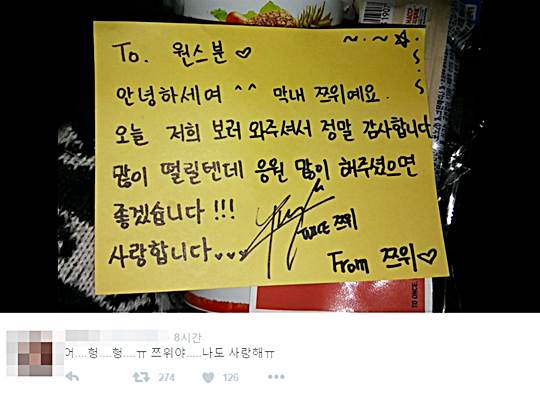 To. 원스분♡
안녕하세여 ^^ 막내 쯔위예요.
오늘 저희 보러 와주셔서 정말 감사합니다
많이 떨릴텐데 응원 많이 해주셨으면
좋겠습니다!!!
사랑합니다...
TWICE 쯔위
From 쯔위♡
TO ONCE,
8시간
어....헝....헝....ㅠ 쯔위야.....나도 사랑해ㅠ
274 126